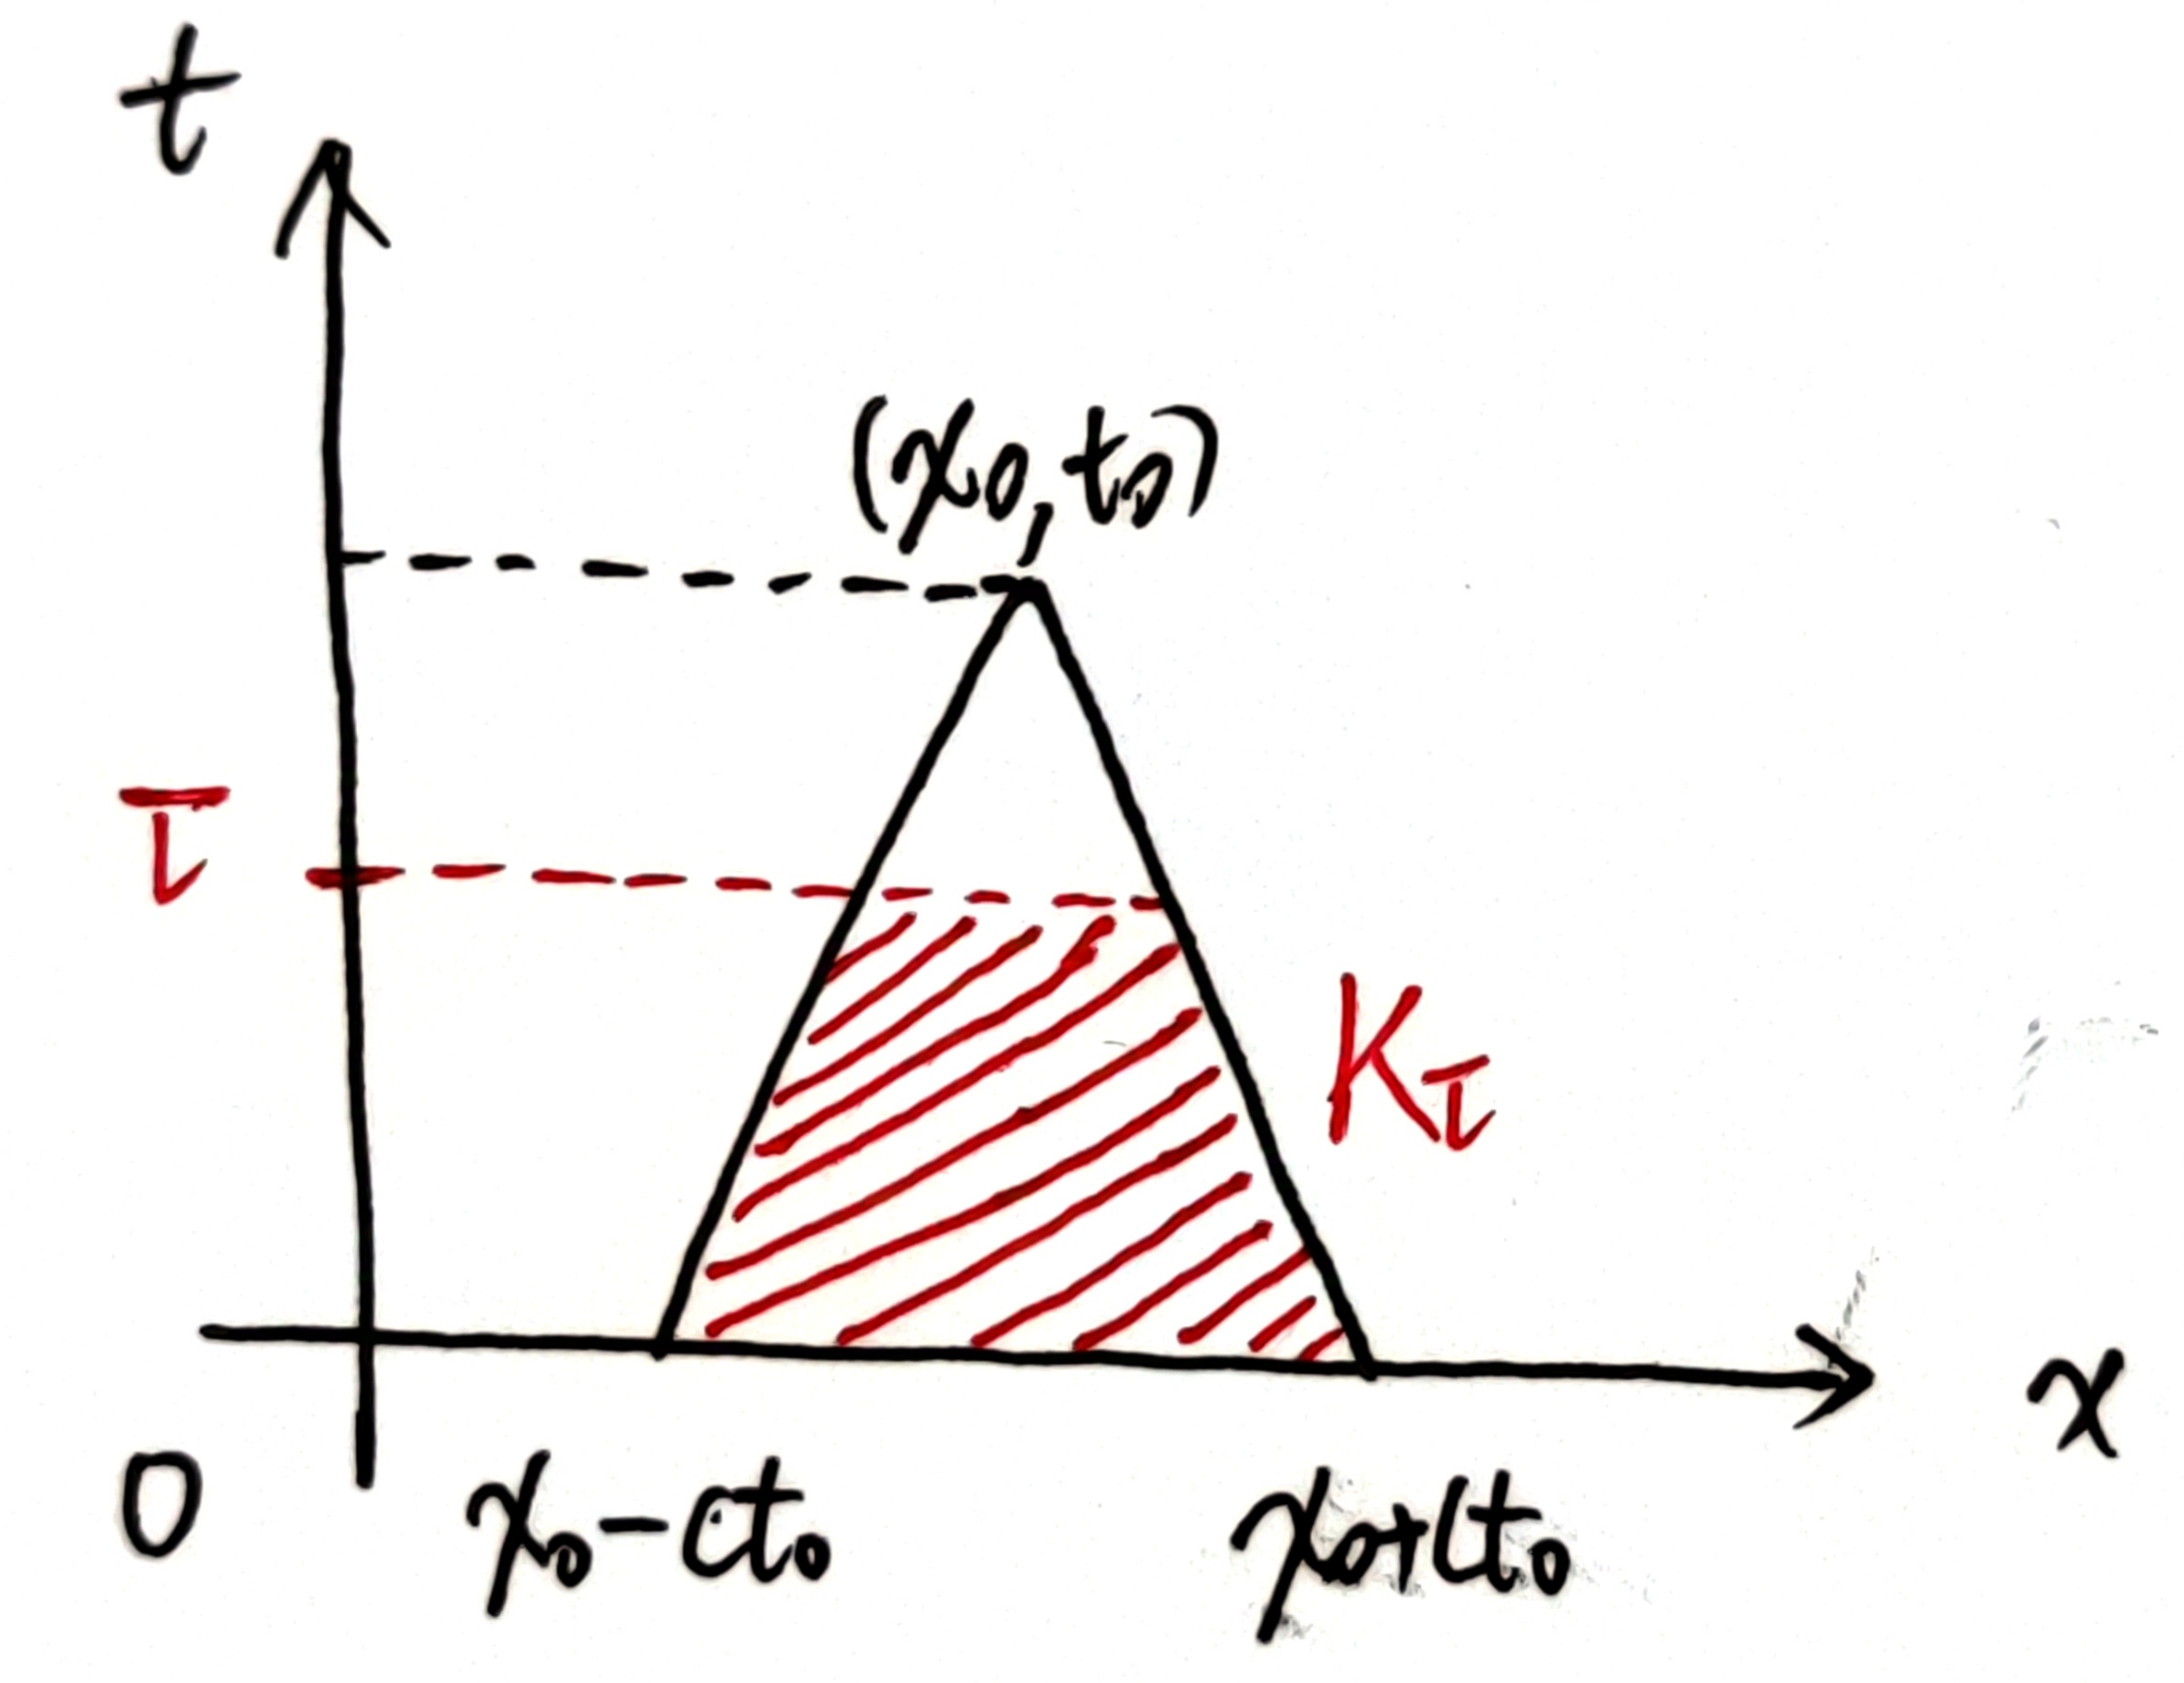 t
(x₀,t₀)
τ
K_τ
x
0
x₀-ct₀
x₀+ct₀